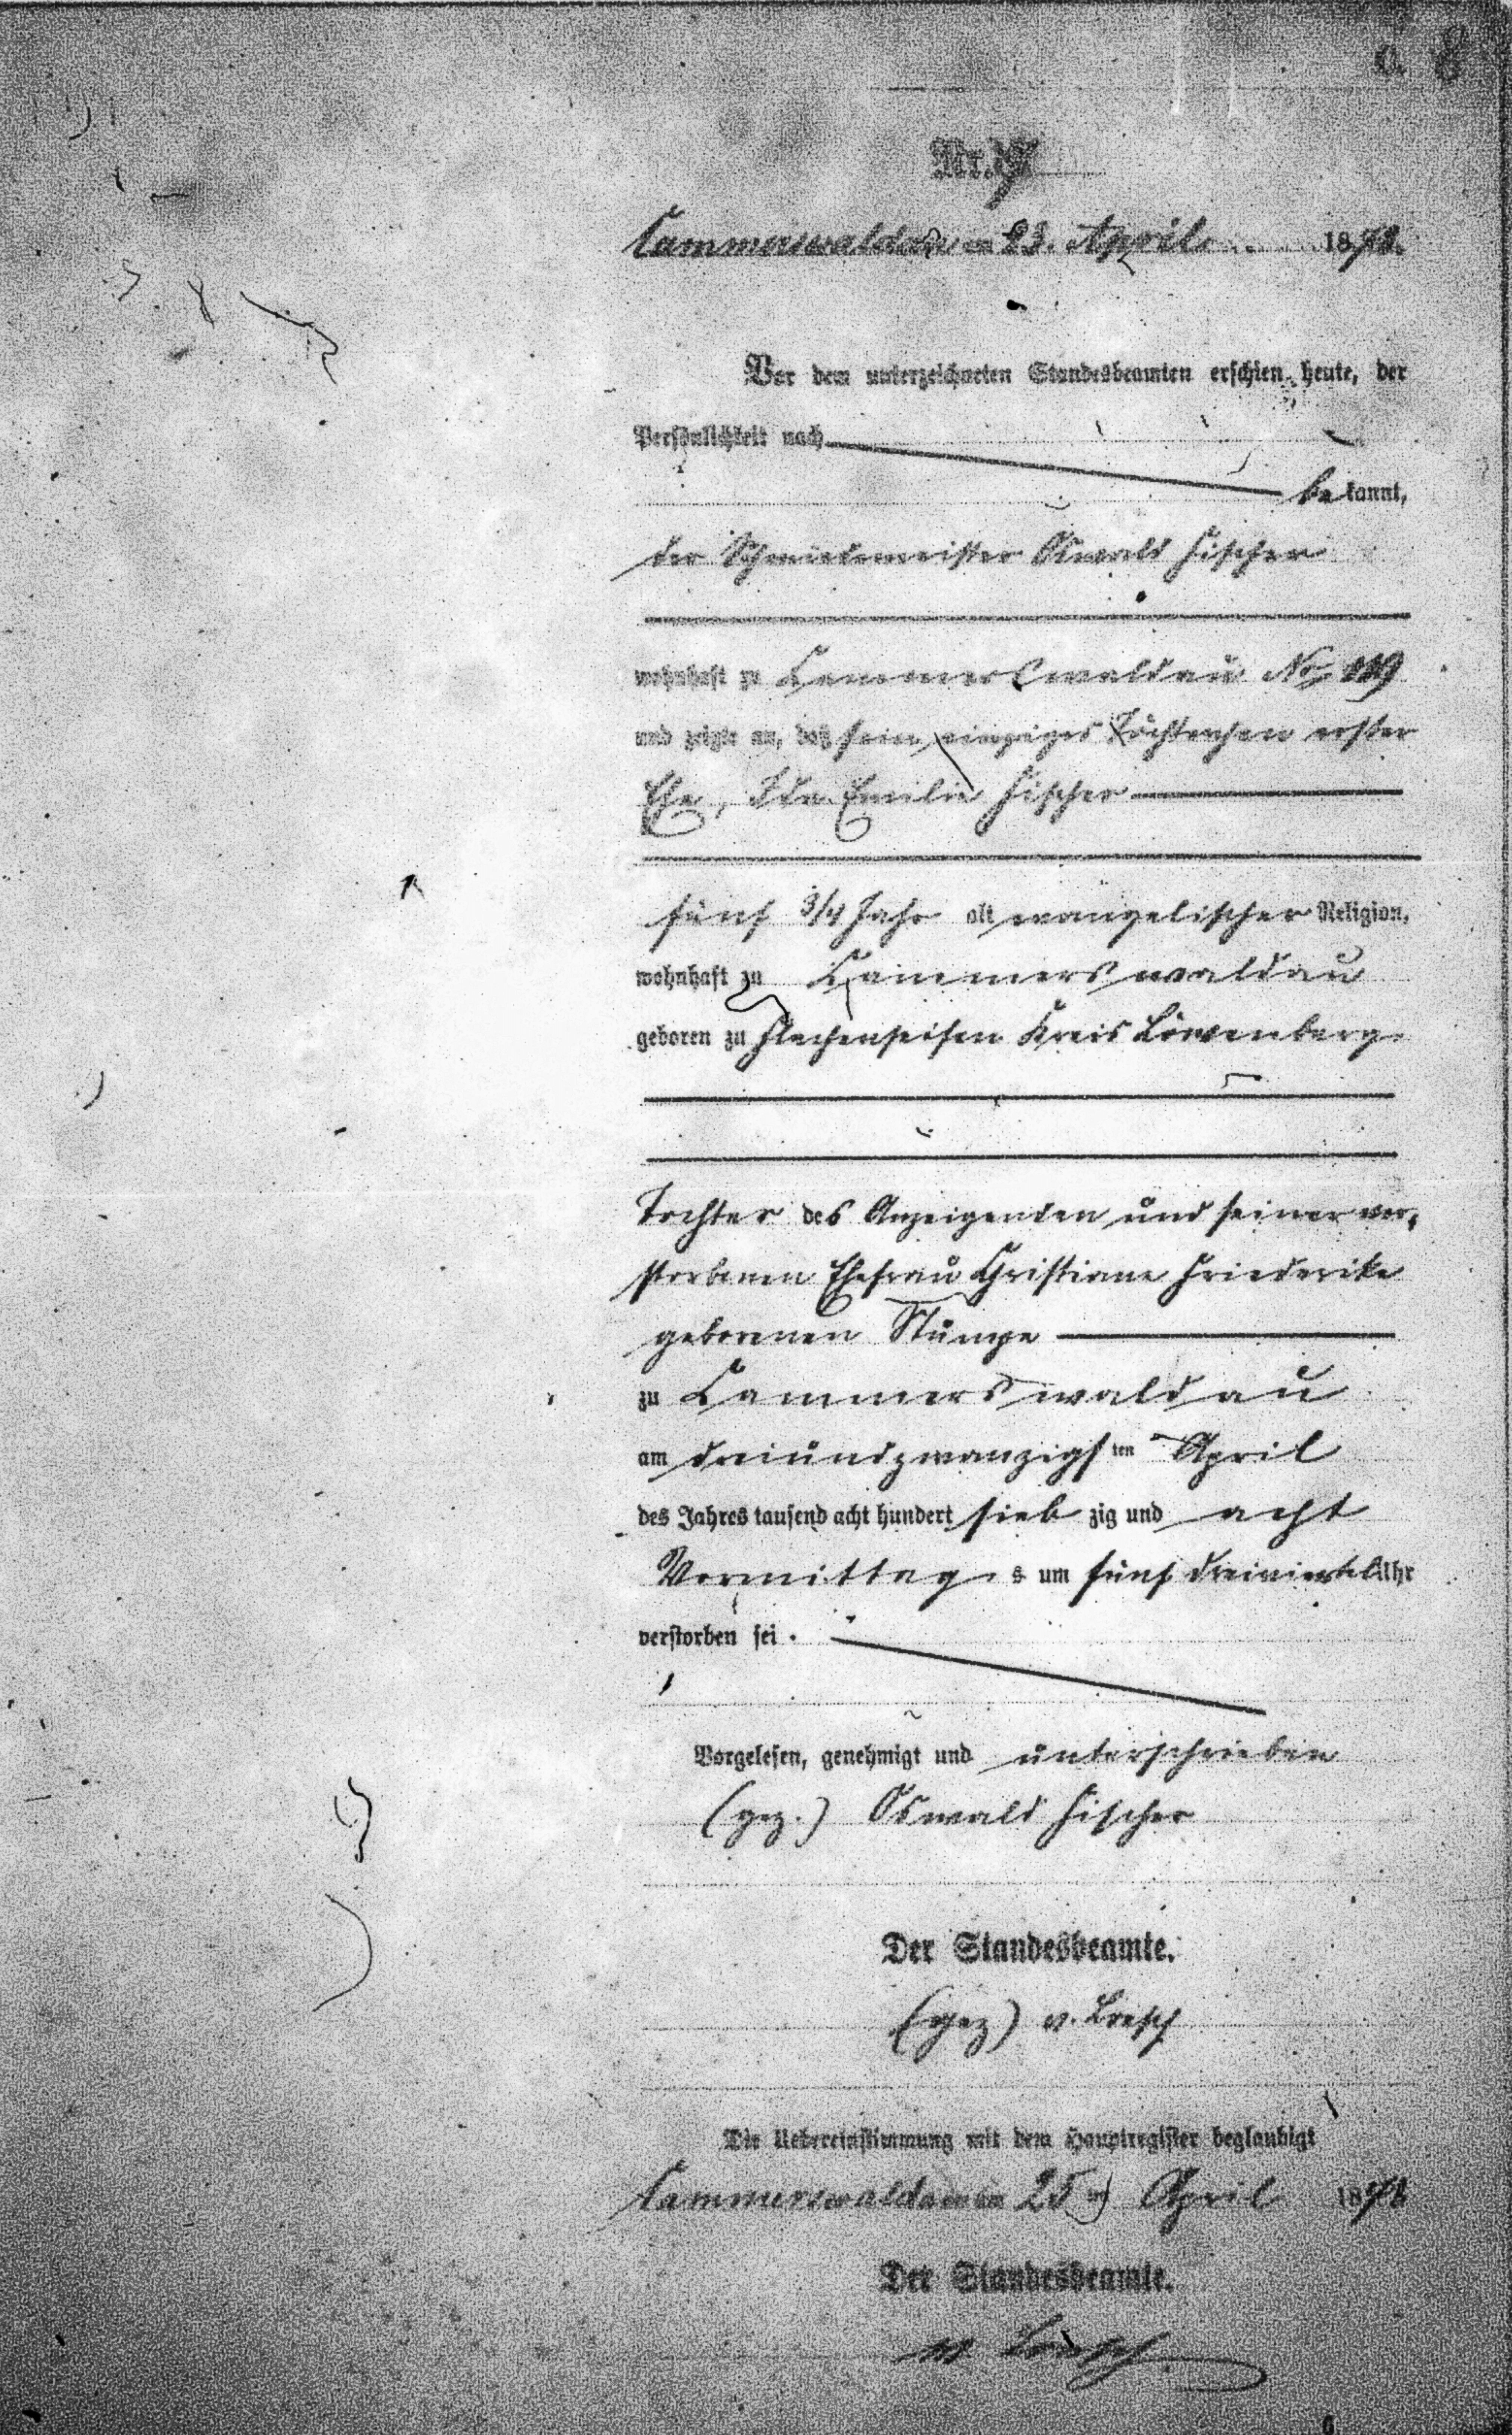 a. 8
Nr.
Cammerswaldau am 23. April 1878.
Vor dem unterzeichneten Standesbeamten erschien heute, der
Persönlichkeit nach
be kannt,
der Schmiedemeister Oswald Fischer
wohnhaft zu Cammerswaldau No 119
und zeigte an, daß sein einziges Töchterchen erster
Ehe, Ida Emilie Fischer
fünf 3/4 Jahr alt evangelischer Religion,
wohnhaft zu Cammerswaldau
geboren zu Flachenseifen Kreis Löwenberg
Tochter des Anzeigenden und seiner ver,
storbenen Ehefrau Christiane Friederike
geborenen Stumpe
zu Cammerswaldau
am dreiundzwanzigsten April
des Jahres tausend acht hundert sieb zig und acht
Vormittags um fünf dreiviertel Uhr
verstorben sei.
Vorgelesen, genehmigt und unterschrieben
(gez.) Oswald Fischer
Der Standesbeamte.
(gez) v. Loesch
Die Uebereinstimmung mit dem Hauptregister beglaubigt
Cammerswaldau am 25 April 1878
Der Standesbeamte.
v. Loesch